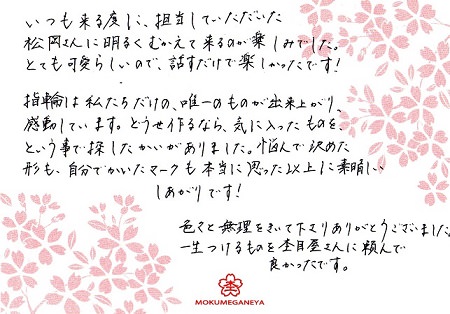 いつも来る度に、担当していただいた
松岡さんに明るくむかえて来るのが楽しみでした。
とても可愛らしいので、話すだけで楽しかったです!
指輪は私たちだけの、唯一のものが出来上がり、
感動しています。どうせ作るなら、気に入ったものを、
という事で探したかいがありました。悩んで決めた
形も、自分でかいたマークも本当に思った以上に素晴しい
しあがりです!
色々と無理をきいて下さりありがとうございました。
一生つけるものを杢目屋さんに頼んで
良かったです。
杢
MOKUMEGANEYA